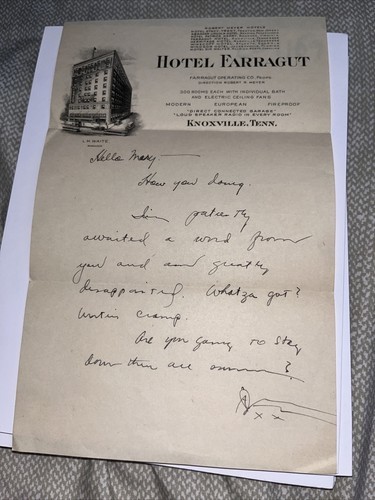 ROBERT MEYER HOTELS
HOTEL FARRAGUT
FARRAGUT OPERATING CO., Props.
DIRECTION ROBERT R. MEYER
ROOMS EACH WITH INDIVIDUAL BATH
AND ELECTRIC CEILING FANS
MODERN EUROPEAN FIREPROOF
"DIRECT CONNECTED GARAGE"
"LOUD SPEAKER RADIO IN EVERY ROOM"
KNOXVILLE, TENN.
Hello Mary —
How you doing.
I'm patiently
awaited a word from
you and am greatly
disappointed. Whatza got?
Writin cramp.
Are you going to stay
down there all summer?
x x